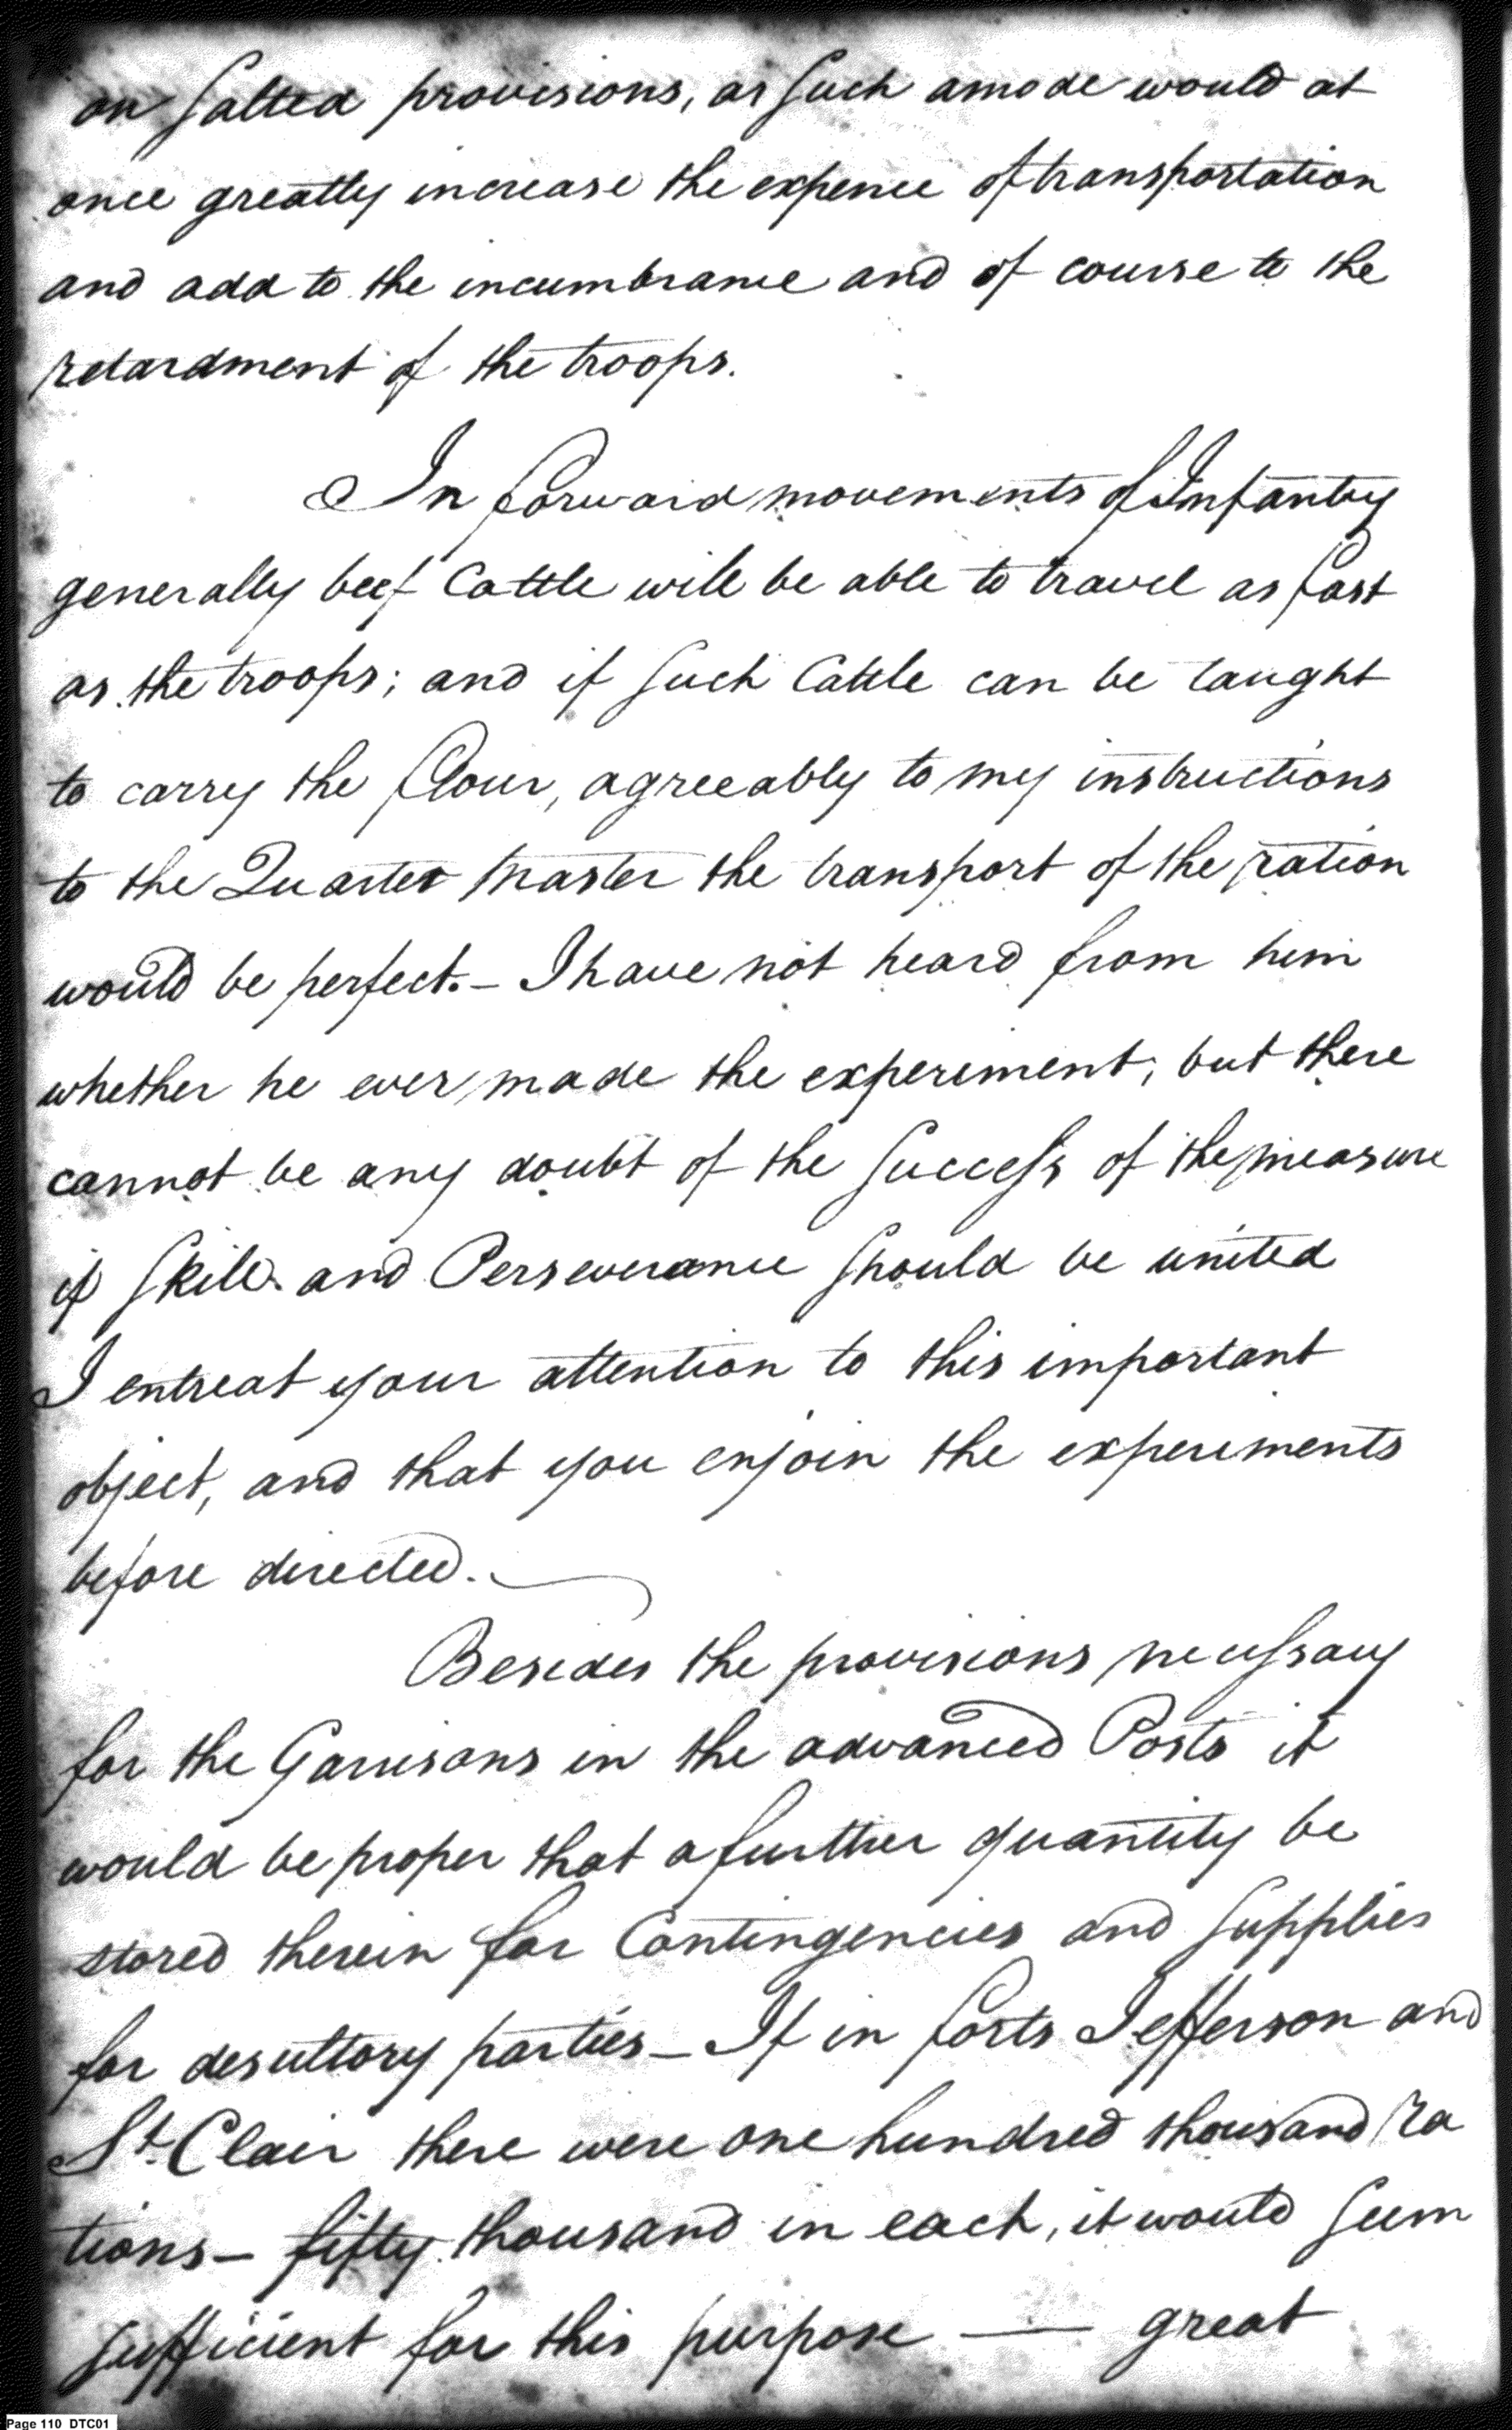 on salted provisions, as such a mode would at
once greatly increase the expence of transportation
and add to the incumbrance and of course to the
retardment of the troops.
In forward movements of Infantry
generally beef Cattle will be able to travel as fast
as the troops; and if such Cattle can be taught
to carry the flour, agreeably to my instructions
to the Quarter Master the transport of the ration
would be perfect. – I have not heard from him
whether he ever made the experiment; but there
cannot be any doubt of the success of the measure
if skill and Perseverance should be united
I entreat your attention to this important
object, and that you enjoin the experiments
before directed.
Besides the provisions necessary
for the Garrisons in the advanced Posts it
would be proper that a further quantity be
stored therein for Contingencies and supplies
for desultory parties – If in forts Jefferson and
St. Clair there were one hundred thousand ra
tions – fifty thousand in each, it would seem
sufficient for this purpose — great
Page 110 DTC01